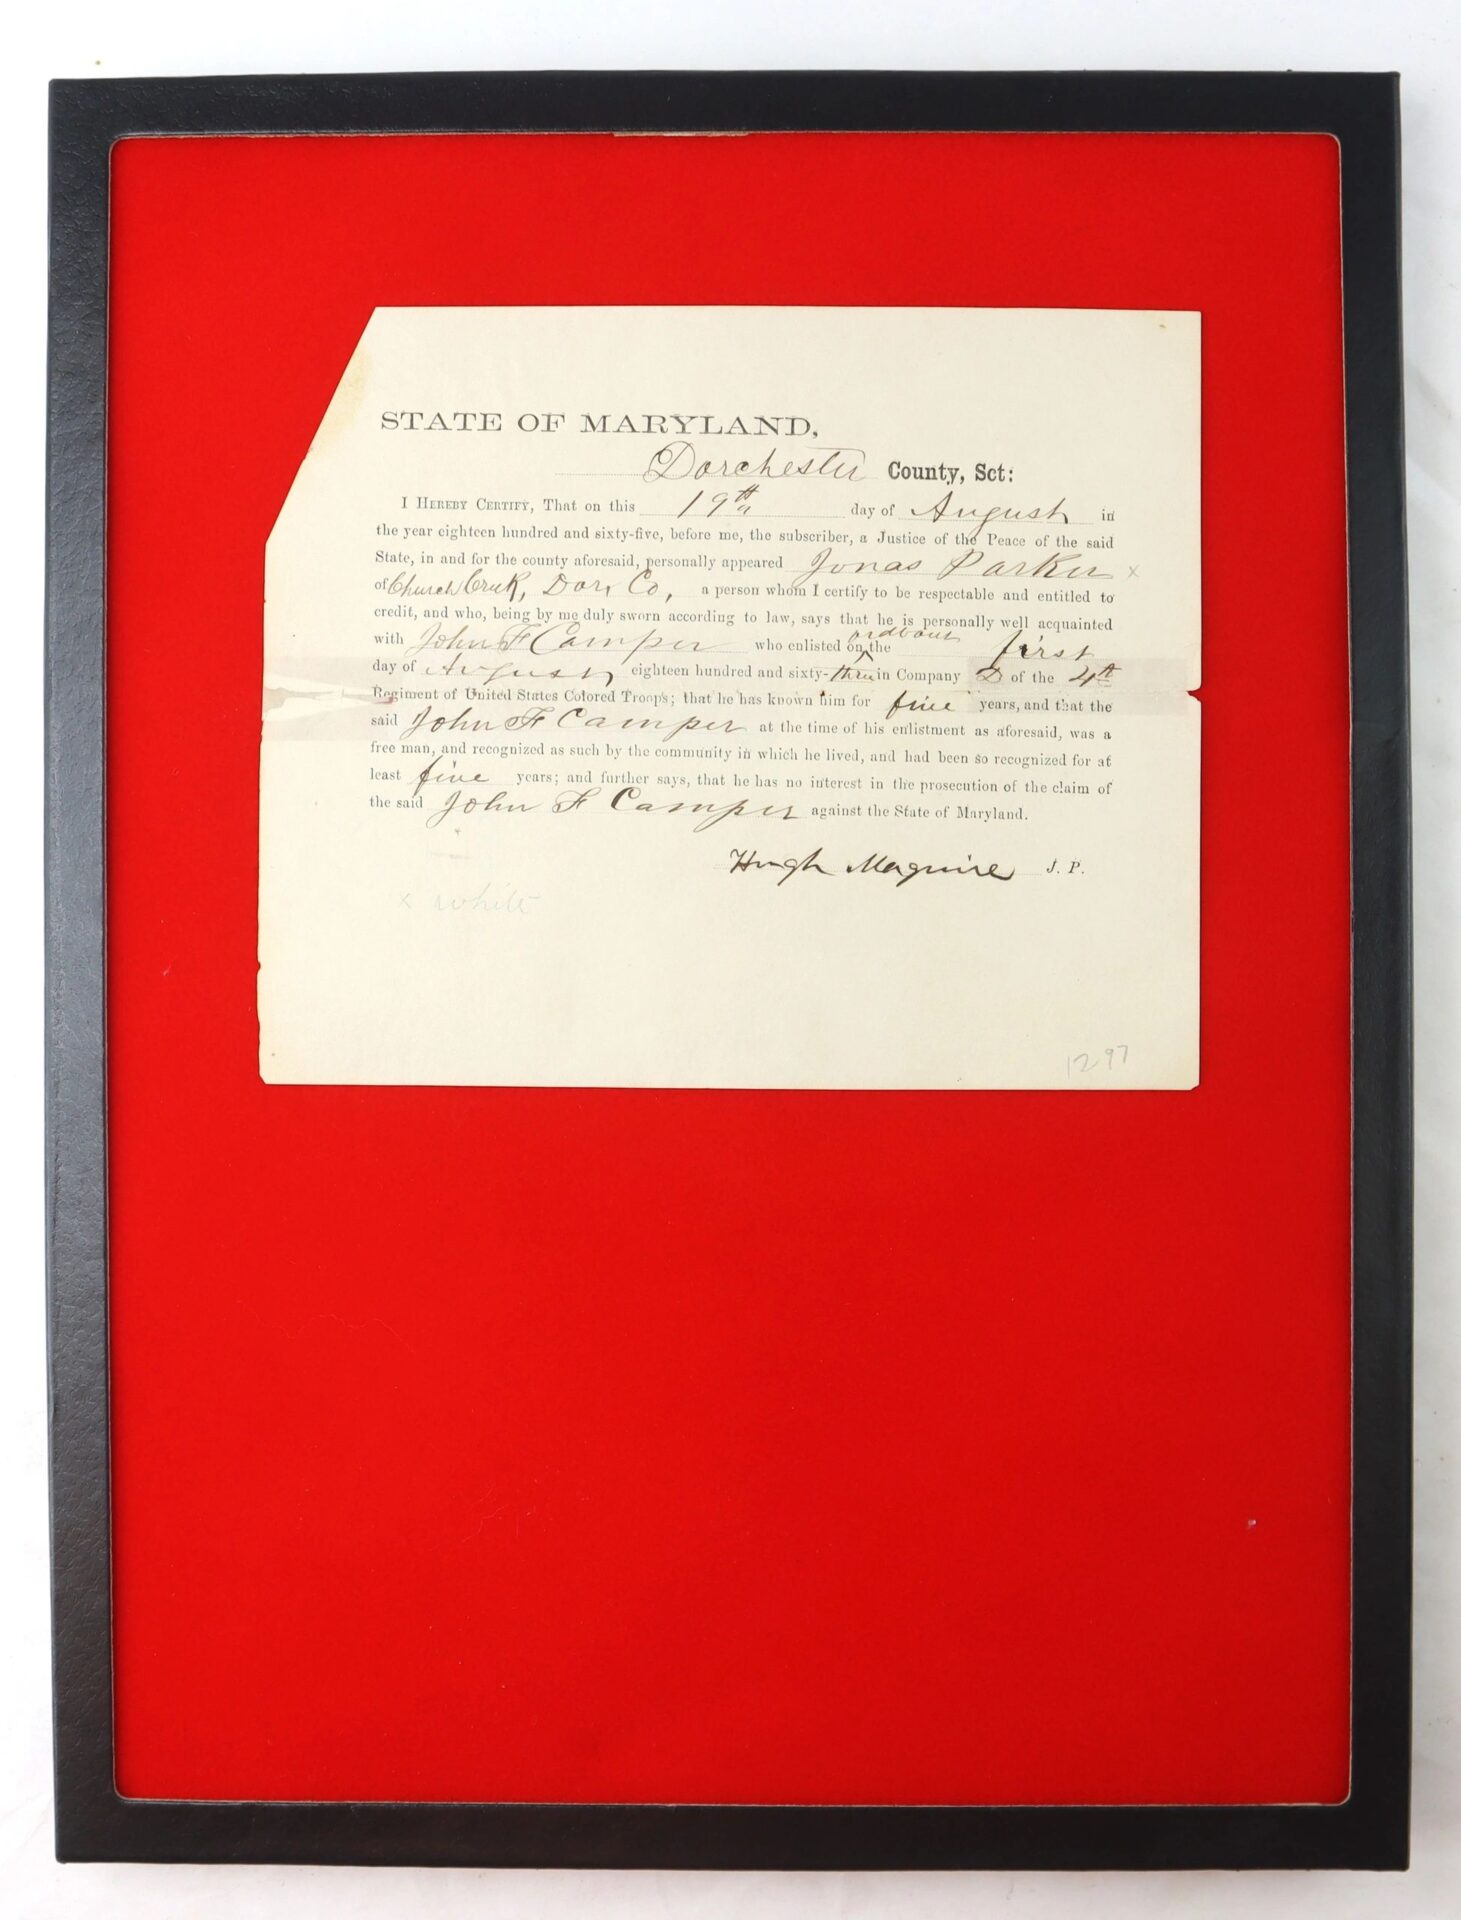 STATE OF MARYLAND,
Dorchester County, Sct:
I HEREBY CERTIFY, That on this 19th day of August in
the year eighteen hundred and sixty-five, before me, the subscriber, a Justice of the Peace of the said
State, in and for the county aforesaid, personally appeared Jonas Parker x
of Church Creek, Dor. Co, a person whom I certify to be respectable and entitled to
credit, and who, being by me duly sworn according to law, says that he is personally well acquainted
or about
with John F Camper who enlisted on the first
day of August eighteen hundred and sixty-three in Company D of the 4th
Regiment of United States Colored Troops; that he has known him for five years, and that the
said John F Camper at the time of his enlistment as aforesaid, was a
free man, and recognized as such by the community in which he lived, and had been so recognized for at
least five years; and further says, that he has no interest in the prosecution of the claim of
the said John F Camper against the State of Maryland.
Hugh Maguire J. P.
x white
1297